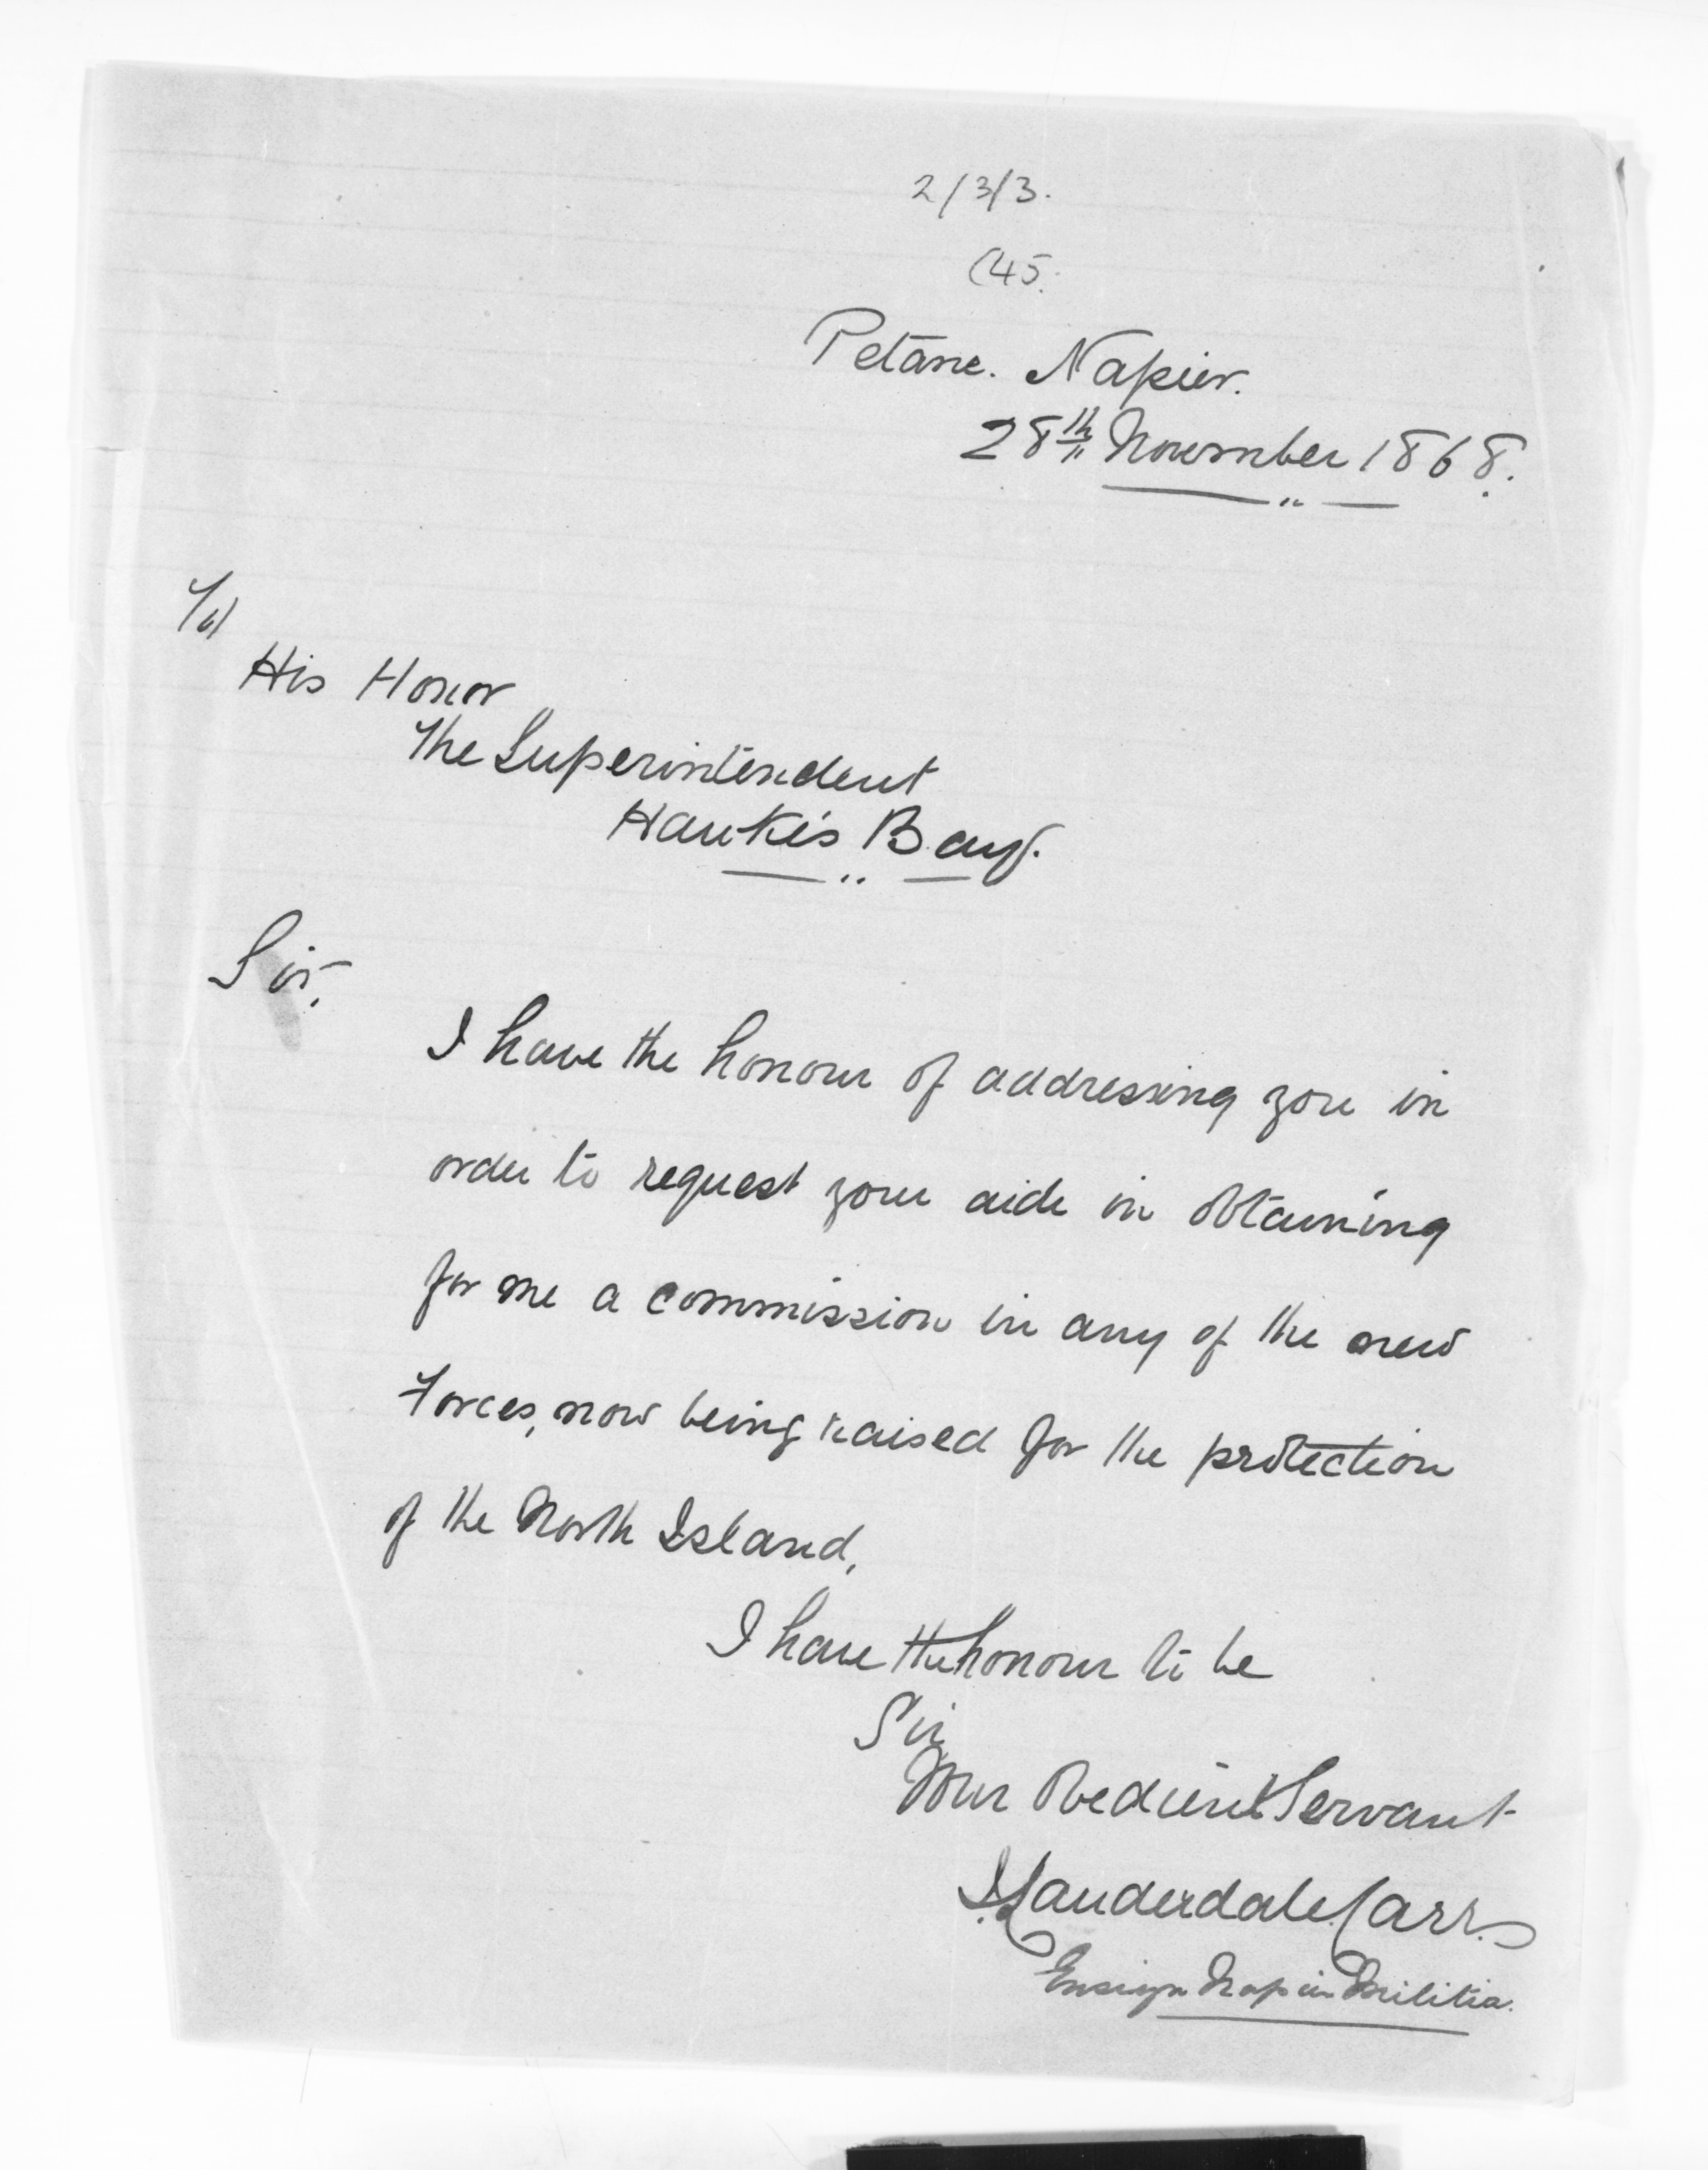 2/3/3.
(45.
Petane. Napier.
28th November 1868.
To/
His Honor
The Superintendent
Hauke's Bay.
Sir,
I have the honour of addressing you in
order to request your aide in obtaining
for me a commission in any of the new
Forces, now being raised for the protection
of the North Island,
I have the honour to be
Sir
Your Obedient Servant
Lauderdale Carr
Ensign Napier Militia.